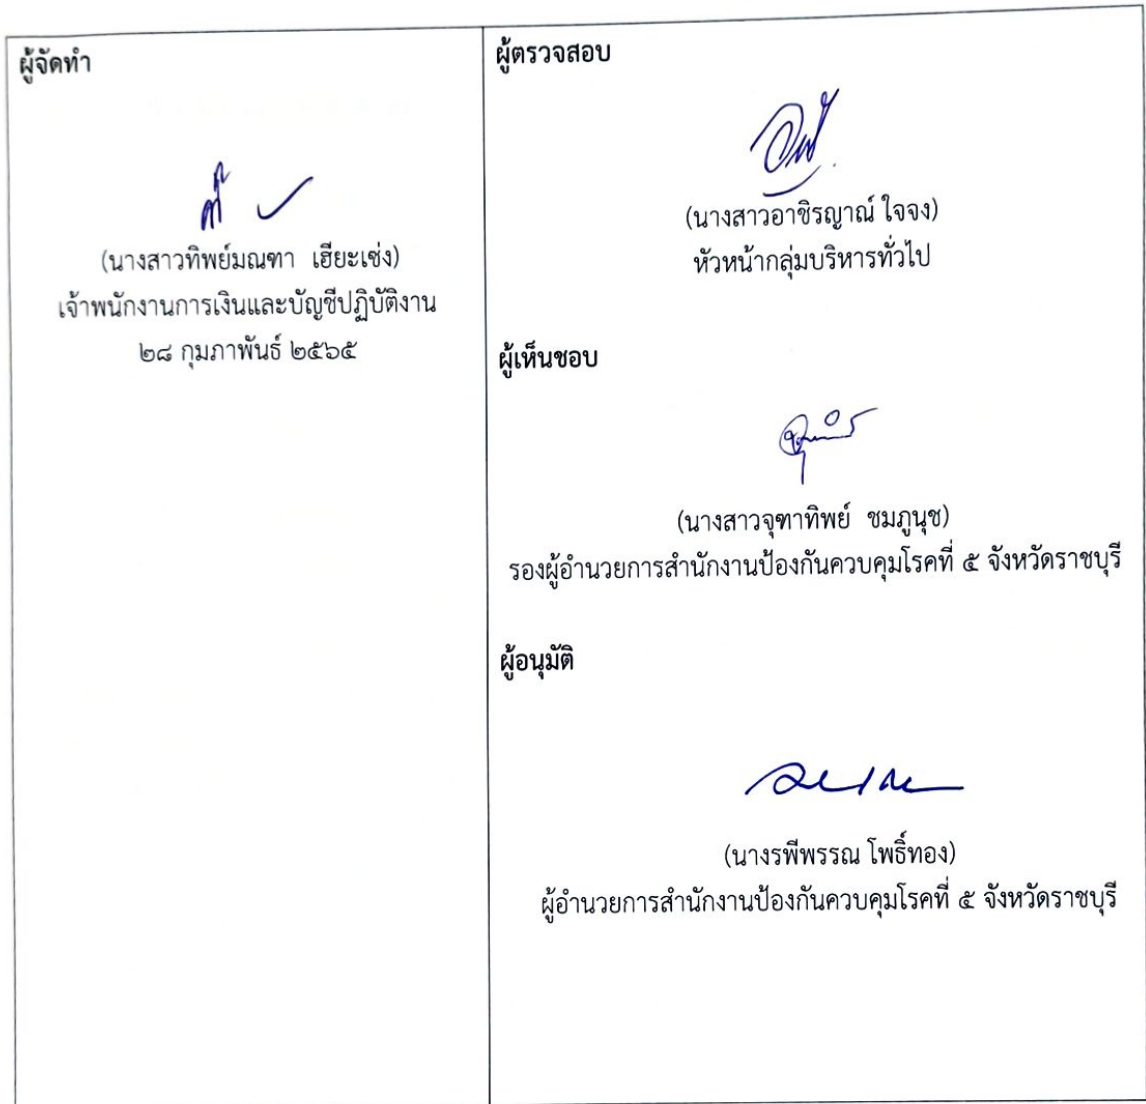 ผู้จัดทำ
(นางสาวทิพย์มณฑา เฮียะเซ่ง)
เจ้าพนักงานการเงินและบัญชีปฏิบัติงาน
๒๘ กุมภาพันธ์ ๒๕๖๕
ผู้ตรวจสอบ
(นางสาวอาชิรญาณ์ ใจจง)
หัวหน้ากลุ่มบริหารทั่วไป
ผู้เห็นชอบ
(นางสาวจุฑาทิพย์ ชมภูนุช)
รองผู้อำนวยการสำนักงานป้องกันควบคุมโรคที่ ๕ จังหวัดราชบุรี
ผู้อนุมัติ
(นางรพีพรรณ โพธิ์ทอง)
ผู้อำนวยการสำนักงานป้องกันควบคุมโรคที่ ๕ จังหวัดราชบุรี